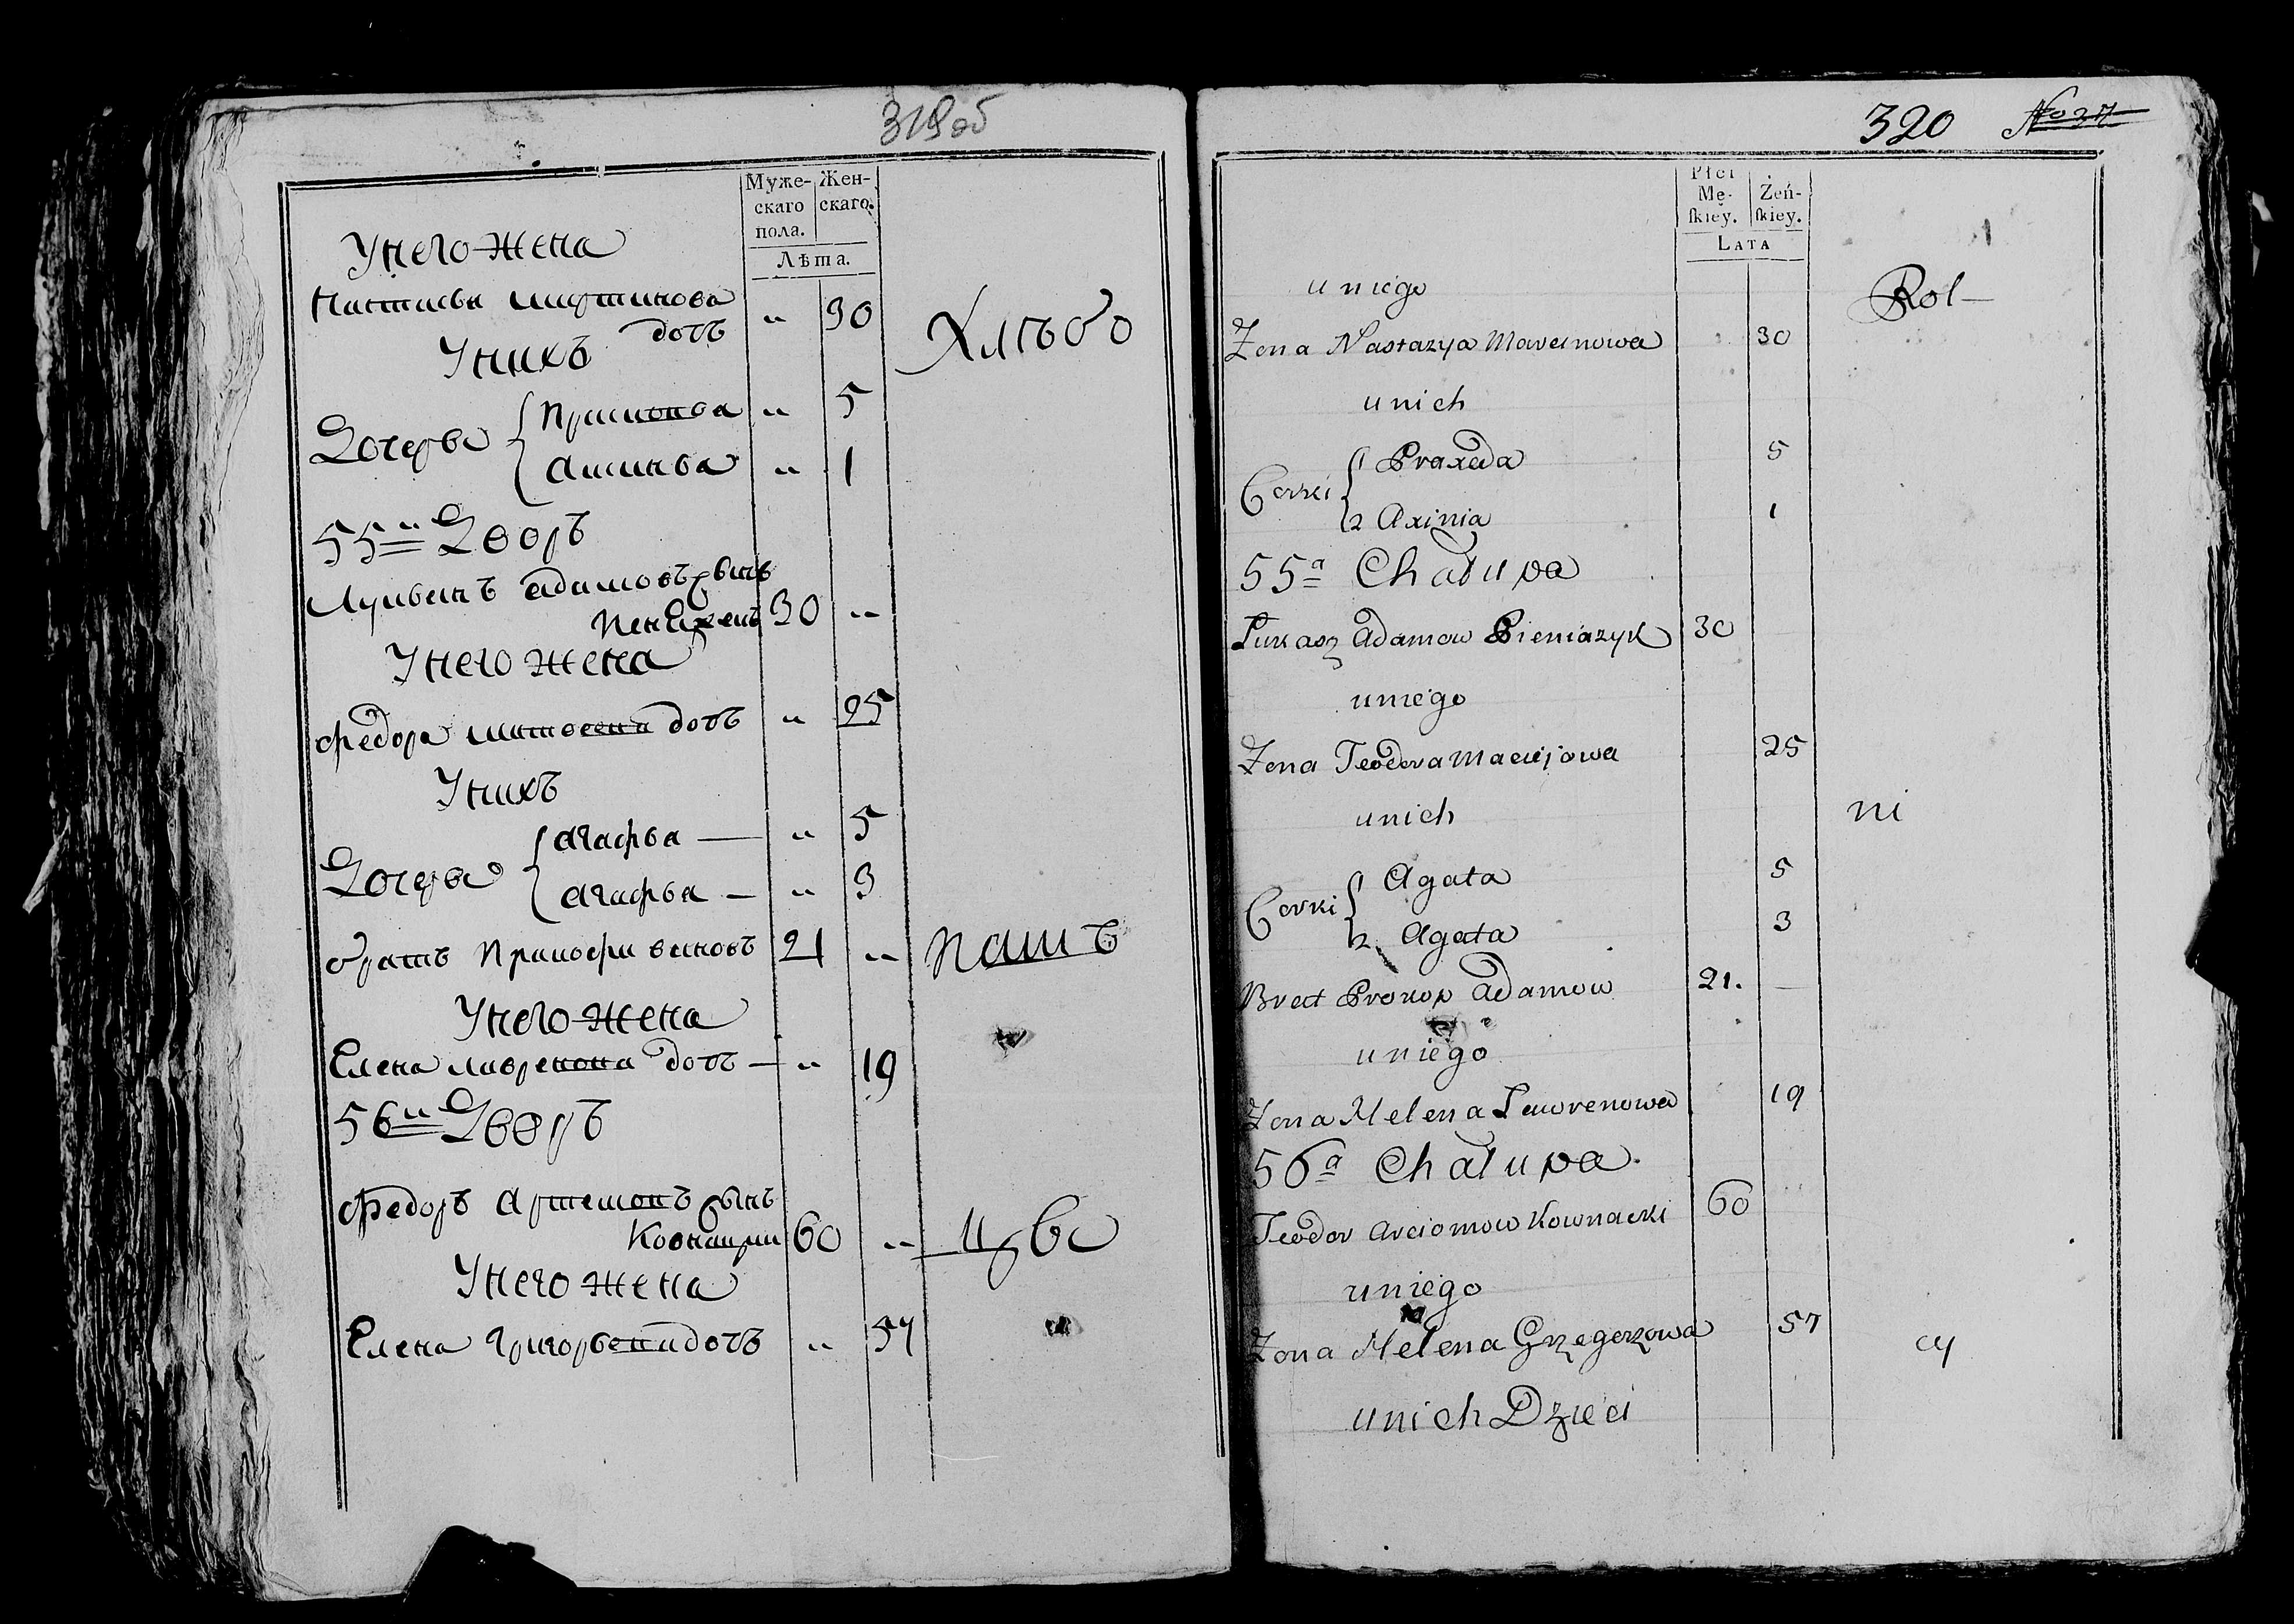 319об
Муже-
скаго
пола.
Жен-
скаго.
Лѣта.
У него жена
дочь
" 30
У нихъ
Хлѣбо
" 5
Дочери
" 1
55й Дворъ
Адамовъ сынъ
30 "
У него жена
Федора дочь " 25
У нихъ
Агафья — " 5
Дочери
Агафья — " 3
братъ 21 "
пашъ
У него жена
Елена дочь — " 19
56й Дворъ
Федоръ сынъ
60 "
цы
У него жена
Елена дочь " 57
320 No 37
Płci
Mę-
ſkiey.
Żeń-
ſkiey.
Lata
u niego
Rol-
Zona Nastazya Marcinowa 30
u nich
Praxeda 5
Corki
2 Axinia 1
55a Chałupa
Łukasz Adamow Pieniazyk 30
u niego
Zona Teodora Maciejowa 25
u nich
ni
Agata 5
Corki
2 Agata 3
Brat Prokop Adamow 21. —
u niego
Zona Helena Ławrenowa 19
56a Chałupa.
Teodor Arciomow Kownacki 60
u niego
Zona Helena Grzegorzowa 57
cy
u nich Dzieci